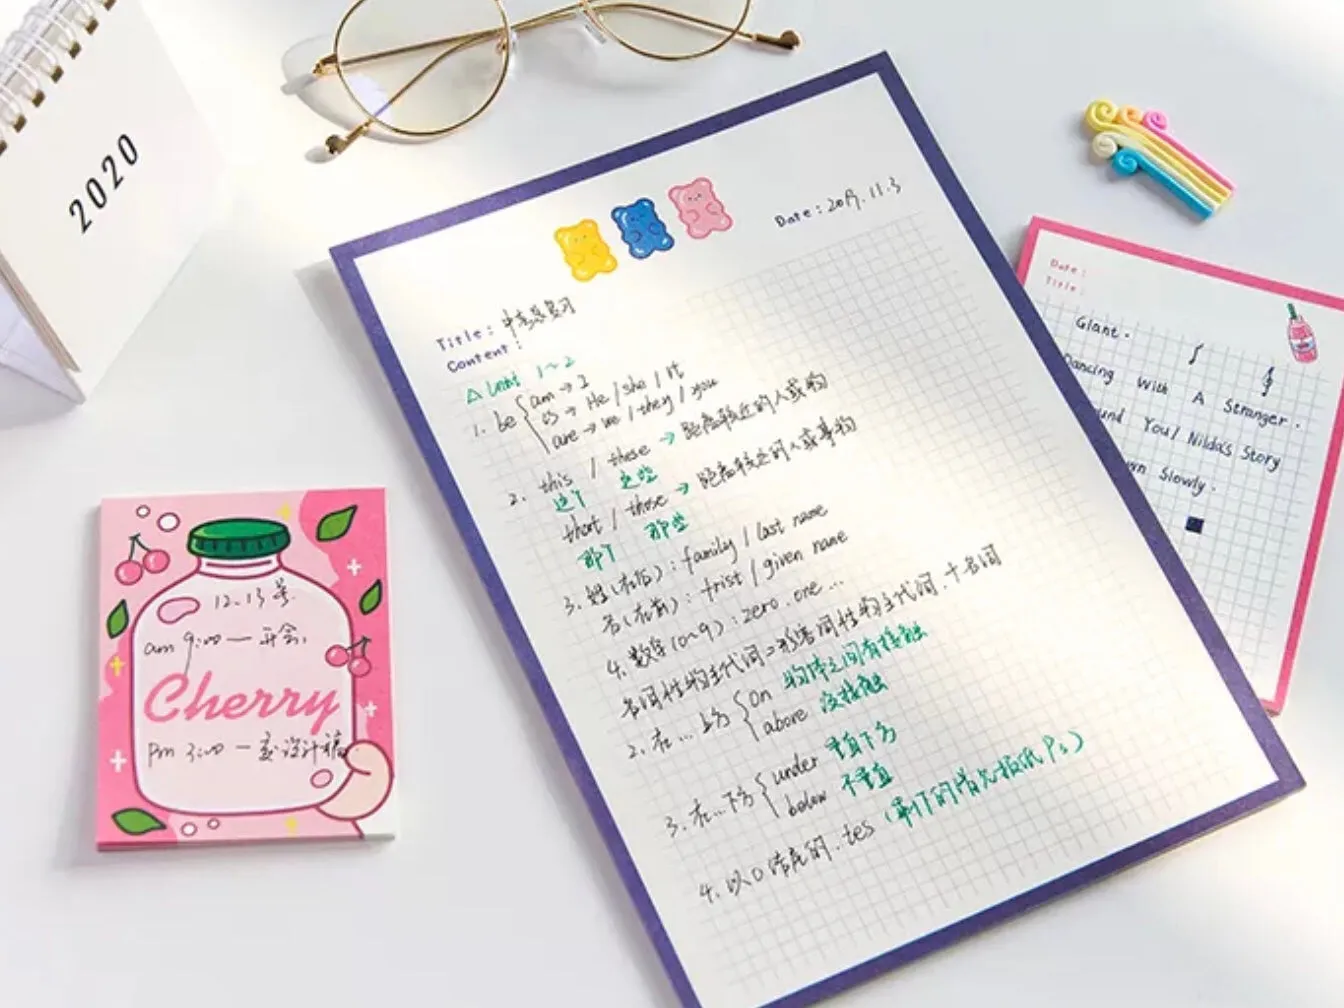 2020
Date: 2019.11.3
Title: 中考总复习
Content:
△ Unit 1~2
1. be { am → I
is → He / she / it
are → we / they / you
2. this / these → 距离较近的人或物
这个 这些
that / those → 距离较远的人或事物
那个 那些
3. 姓(在后): family / last name
名(在前): frist / given name
4. 数字(0~9): zero. one...
名词性物主代词=形容词性物主代词.十名词
2. 在...上方 { on 物体之间有接触
above 没接触
3. 在...下方 { under 垂直下方
below 不垂直
4. 以o结尾的. +es
12.13号
am 9:00 — 开会
Cherry
pm 3:00 — 交设计稿
Date:
Title:
Giant.
Dancing With A Stranger.
You/ Nilda's Story
Slowly.